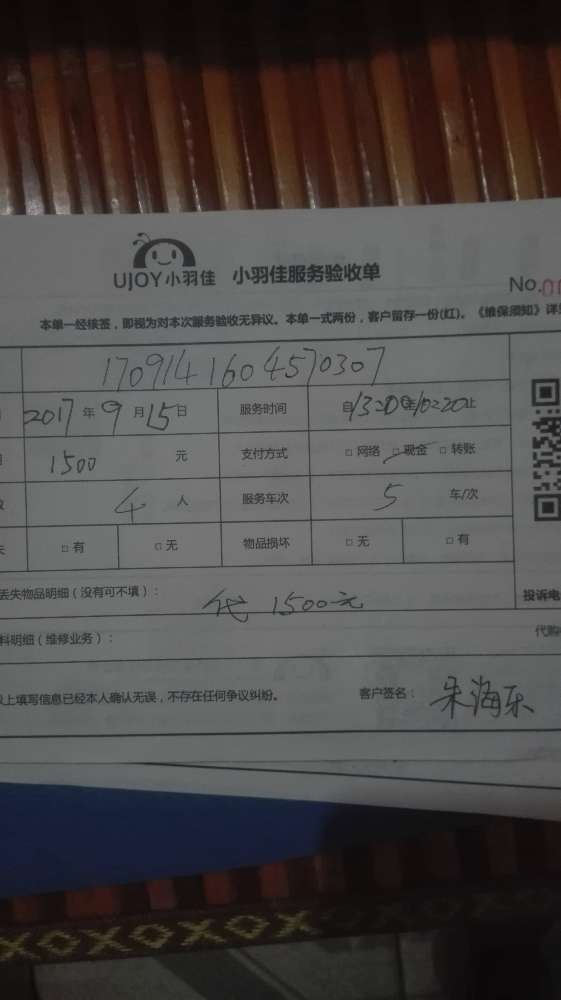 UJOY小羽佳 小羽佳服务验收单
No.01
本单一经核签，即视为对本次服务验收无异议。本单一式两份，客户留存一份(红)。《维保须知》详
1709141604570307
2017 年 9 月 15 日 服务时间 自13:20至16:20止
1500 元 支付方式 □ 网络 □ 现金 □ 转账
4 人 服务车次 5 车/次
□ 有 □ 无 物品损坏 □ 无 □ 有
丢失物品明细（没有可不填）： 代 1500元
投诉电
料明细（维修业务）： 代购
以上填写信息已经本人确认无误，不存在任何争议纠纷。 客户签名： 朱海乐